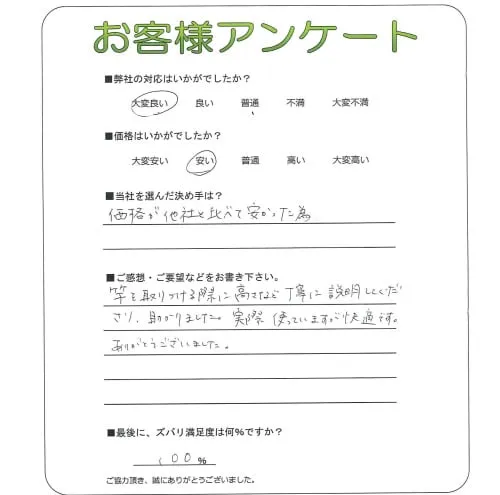 お客様アンケート
■弊社の対応はいかがでしたか?
大変良い 良い 普通 不満 大変不満
■価格はいかがでしたか?
大変安い 安い 普通 高い 大変高い
■当社を選んだ決め手は?
価格が他社と比べて安かった為
■ご感想・ご要望などをお書き下さい。
竿を取りつける際に高さなど丁寧に説明してくだ
さり、助かりました。実際使っていますが快適です。
ありがとうございました。
■最後に、ズバリ満足度は何%ですか?
100%
ご協力頂き、誠にありがとうございました。